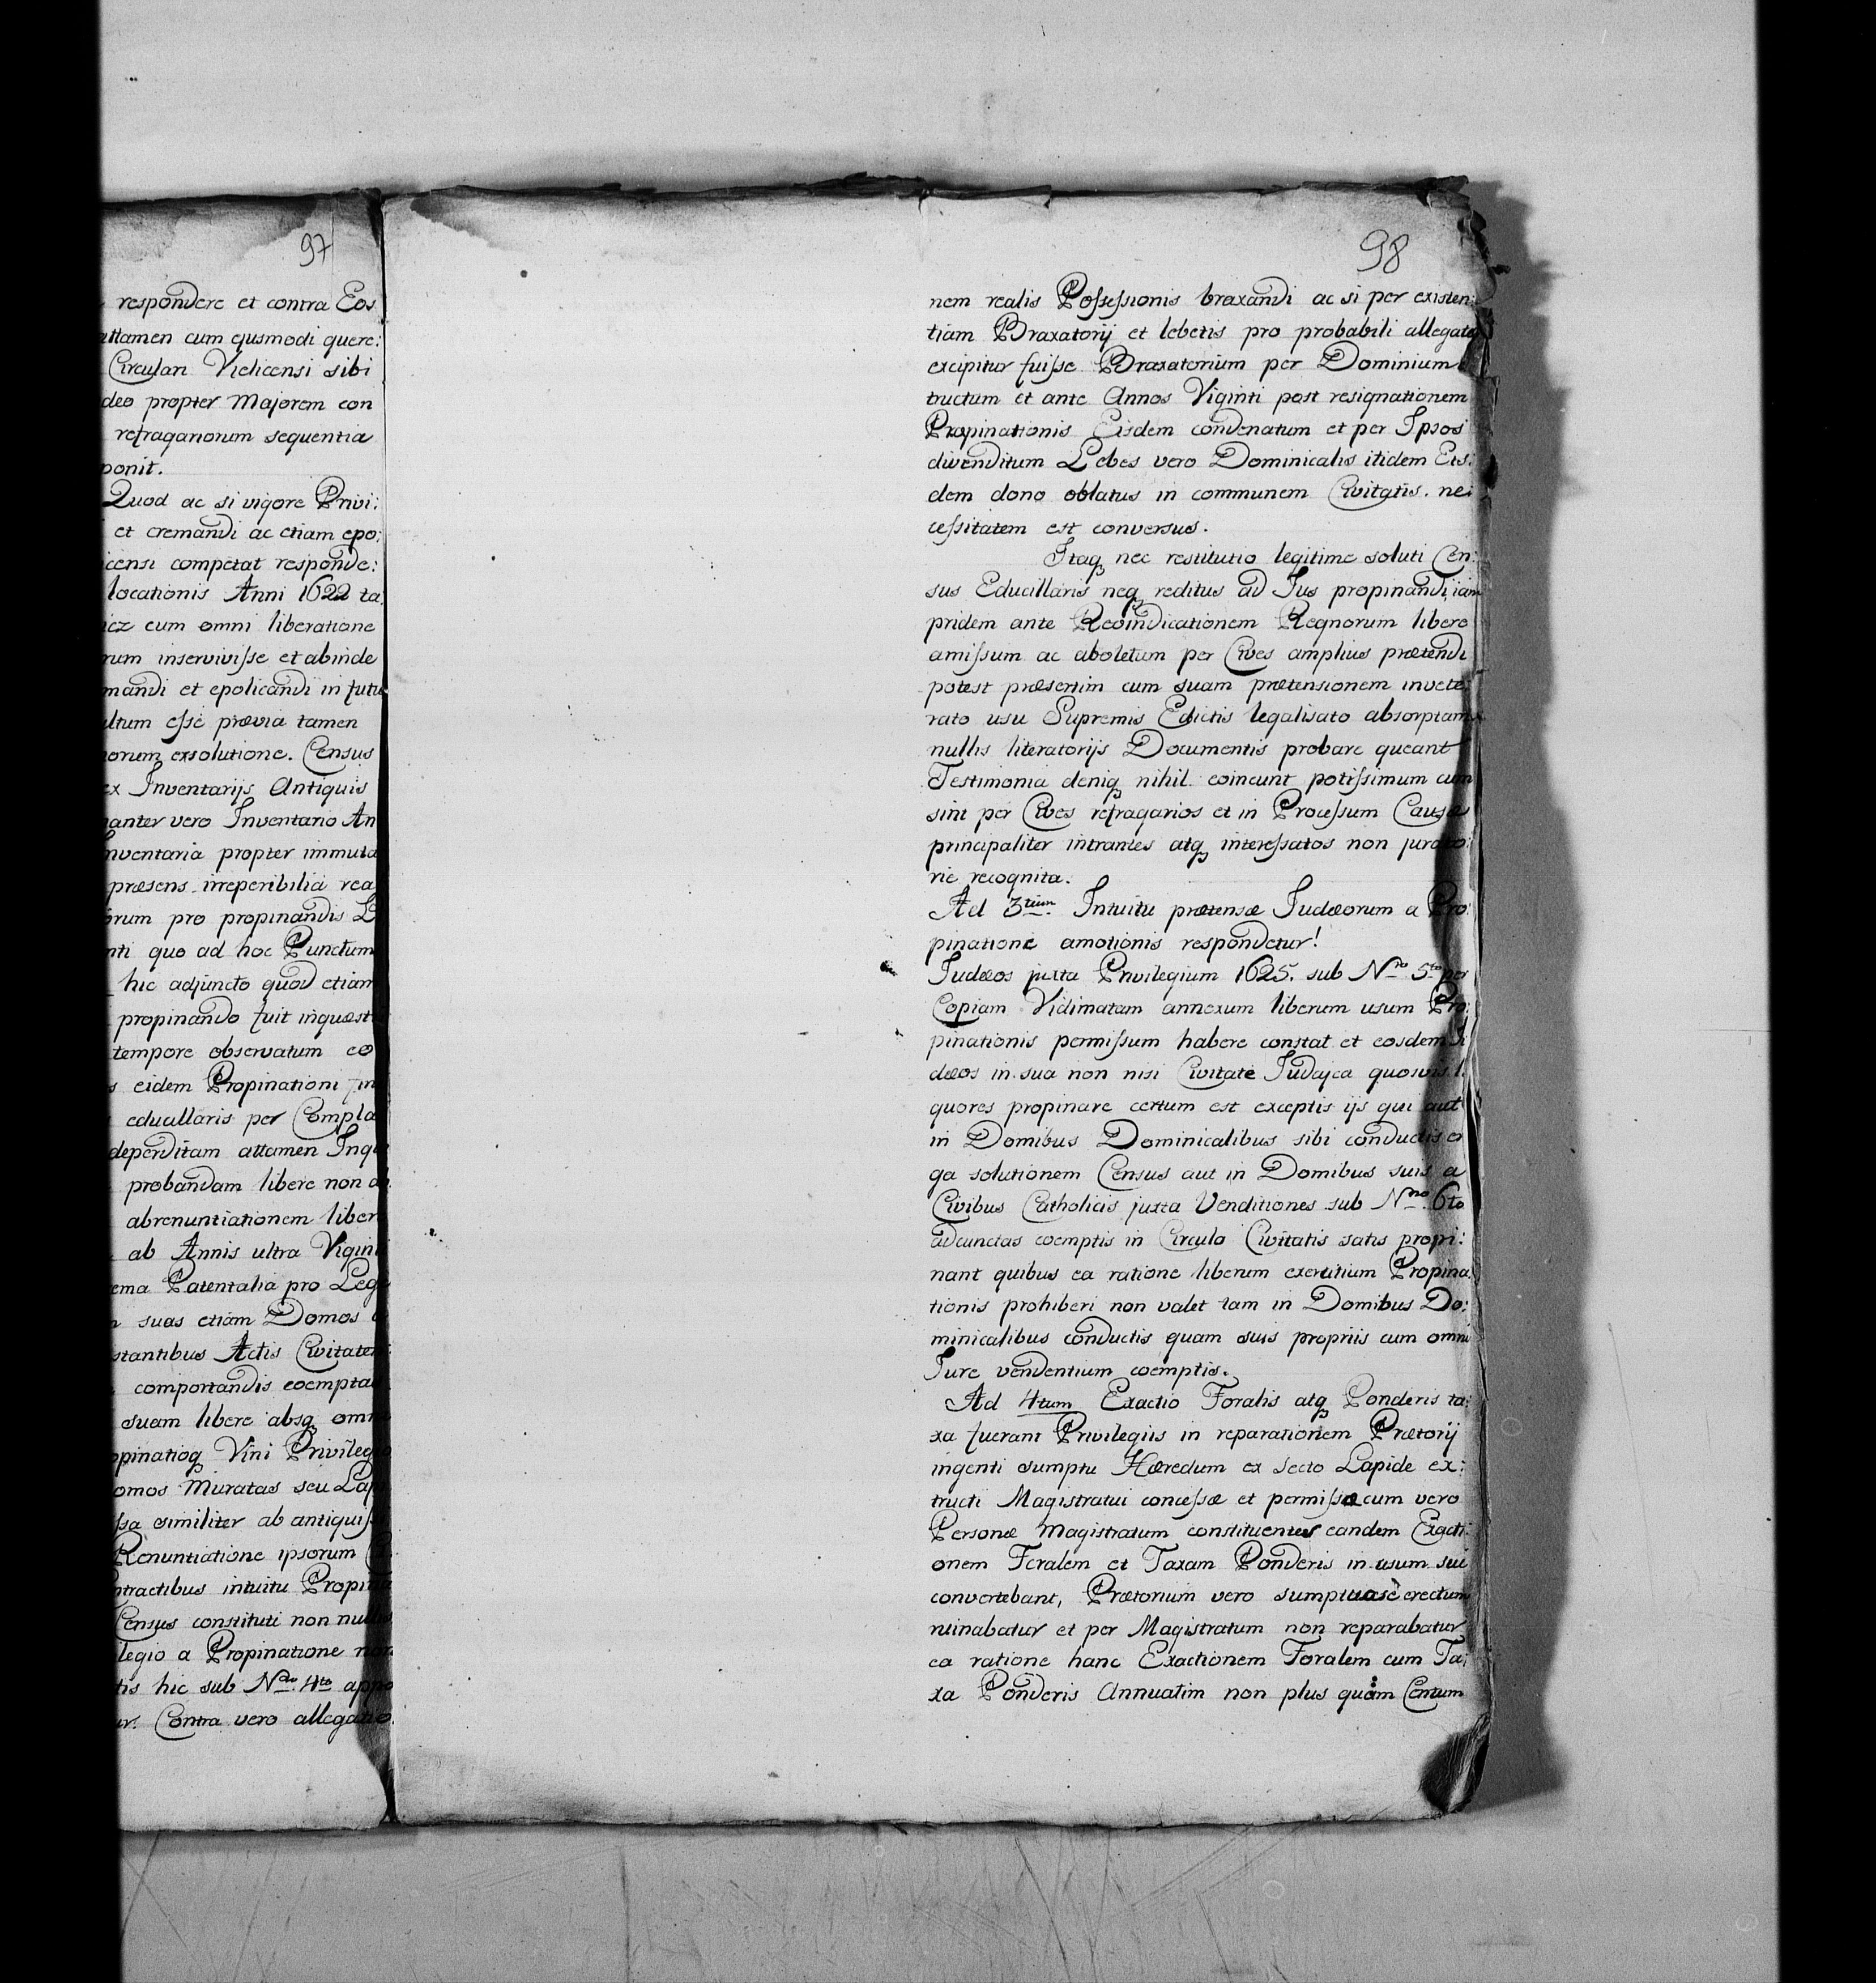 97
respondere et contra Eos
attamen cum ejusmodi quere:
Circulari Vielicensi sibi
deo propter Majorem con
refragariorum sequentia
ponit.
Quod ac si vigore Privi:
et cremandi ac etiam epo:
censi competat responde:
locationis Anni 1622 ta:
icz cum omni liberatione
rum inservivisse et abinde
mandi et epolicandi in futu
ultum esse prævia tamen
orum exsolutione. Census
ex Inventarijs Antiquis
nanter vero Inventario An
nventaria propter immuta
præsens irreperibilia rea
orum pro propinandis L
nti quo ad hoc Punctum
hic adjuncto quod etiam
propinando fuit inquæst
tempore observatum eo
s eidem Propinationi in
educillaris per Compla
deperditam attamen Inqu
probandam libere non
abrenuntiationem liber
ab Annis ultra Vigin
ema Patentalia pro Leg
suas etiam Domos
stantibus Actis Civitaten:
comportandis coempta
suam libere absq omn
opinatioq Vini Privileg
omos Muratas seu Lap
ssa similiter ab antiquis
Renuntiatione ipsorum
ntractibus intuitu Propina
Census constituti non nul
legio a Propinatione non
tis hic sub Nro. 4to appo
ur. Contra vero allegatio
98
nem realis Possessionis braxandi ac si per existen:
tiam Braxatorij et lebetis pro probabili allegata
excipitur fuisse Braxatorium per Dominium
tructum et ante Annos Viginti post resignationem
Propinationis Eisdem condenatum et per Ipsos
divenditum Lebes vero Dominicalis itidem Eis:
dem dono oblatus in communem Civitatis. ne:
cessitatem est conversus.
Itaq nec restitutio legitime soluti Cen:
sus Educillaris neq reditus ad Jus propinandi, iam
pridem ante Revindicationem Regnorum libere
amissum ac aboletum per Cives amplius prætendi
potest præsertim cum suam prætensionem invete:
rato usu Supremis Edictis legalisato absorptam
nullis literatorijs Documentis probare queant
Testimonia deniq nihil eoincunt potissimum cum
sint per Cives refragarios et in Processum Causæ
principaliter intrantes atq interessatos non jurato:
rie recognita.
Ad 3tium Intuitu prætensæ Judæorum a Pro:
pinatione amotionis respondetur!
Judæos juxta Privilegium 1625. sub Nro 5to per
Copiam Vidimatam annexum liberum usum Pro:
pinationis permissum habere constat et eosdem Ju
dæos in sua non nisi Civitate Judajca quosvis li
quores propinare certum est exceptis ijs qui aut
in Domibus Dominicalibus sibi conductis er
ga solutionem Census aut in Domibus suis a
Civibus Catholicis juxta Venditiones sub Nro 6to
adcunctas coemptis in Circulo Civitatis satis propi:
nant quibus ea ratione liberum exercitium Propina
tionis prohiberi non valet tam in Domibus Do:
minicalibus conductis quam suis propriis cum omni
Jure vendentium coemptis.
Ad 4tum Exactio Foralis atq Ponderis ta:
xa fuerant Privilegiis in reparationem Prætorij
ingenti sumptu Hæredum ex Secto Lapide ex:
tructi Magistratui concessæ et permissæ cum vero
Personæ Magistratum constituentes eandem Exacti:
onem Foralem et Taxam Ponderis in usum sui
convertebant, Prætorium vero sumptuose erectum
ruinabatur et per Magistratum non reparabatur
ea ratione hanc Exactionem Foralem cum Ta:
xa Ponderis Annuatim non plus quam Centum